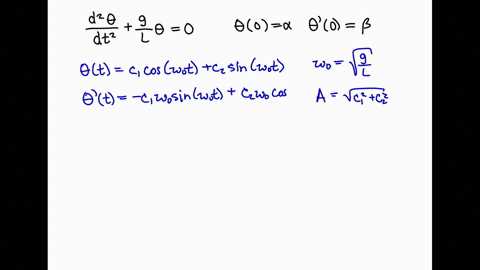 d²θ/dt² + g/L θ = 0   θ(0) = α   θ'(0) = β
θ(t) = c₁ cos(ω₀t) + c₂ sin(ω₀t)   ω₀ = √(g/L)
θ'(t) = -c₁ω₀ sin(ω₀t) + c₂ω₀ cos   A = √(c₁² + c₂²)